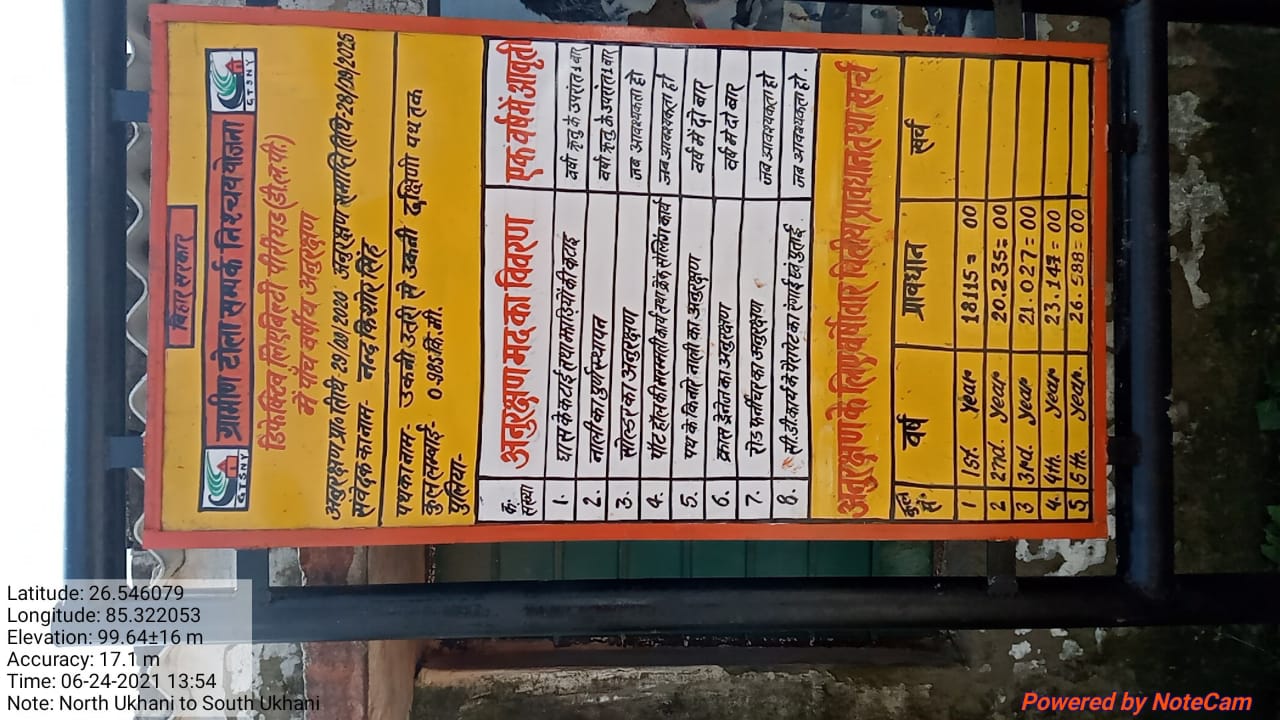 बिहार सरकार
GTSNY
ग्रामीण टोला सम्पर्क निश्चय योजना
GTSNY
डिफेक्टिव लिएबिलटी पीरीयड (डी.ल.पी.)
में पाँच वर्षीय अनुरक्षण
अनुरक्षण प्रा॰ तिथी 29/09/2020 अनुरक्षण समाप्ति तिथि-28/09/2025
संवेदक का नाम- नन्द किशोर सिंह
पथ का नाम- उकनी उतरी से उकनी दक्षिणी पथ तक
कुल लम्बाई- 0.985 कि.मी.
पुलिया-
क्र. संख्या अनुरक्षण मद का विवरण एक वर्ष में आवृती
1. घास के कटाई तथा झाड़ियों की कटाइ वर्षा ऋतु के उपरांत 1 बार
2. नाली का पुर्णस्थापन वर्षा ऋतु के उपरांत 1 बार
3. सोल्डर का अनुरक्षण जब आवश्यकता हो
4. पॉट हॉल की मरम्मती कार्य तथा क्रैक सीलिंग कार्य जब आवश्यकता हो
5. पथ के किनारे नाली का अनुरक्षण वर्ष में दो बार
6. क्रास ड्रेनेज का अनुरक्षण वर्ष में दो बार
7. रोड फर्नीचर का अनुरक्षण जब आवश्यकता हो
8. सी.डी कार्य में पैरापेट का रंगाई एवं पुताई जब आवश्यकता हो.
अनुरक्षण के लिए वर्षो वार वितिय प्रावधान तथा खर्च
वर्ष प्रावधान खर्च
1 1st. year 18115=00
2 2nd. year 20.235=00
3 3rd. year 21.027=00
4. 4th. year 23.147=00
5 5th. year. 26.588=00
Latitude: 26.546079
Longitude: 85.322053
Elevation: 99.64±16 m
Accuracy: 17.1 m
Time: 06-24-2021 13:54
Note: North Ukhani to South Ukhani
Powered by NoteCam